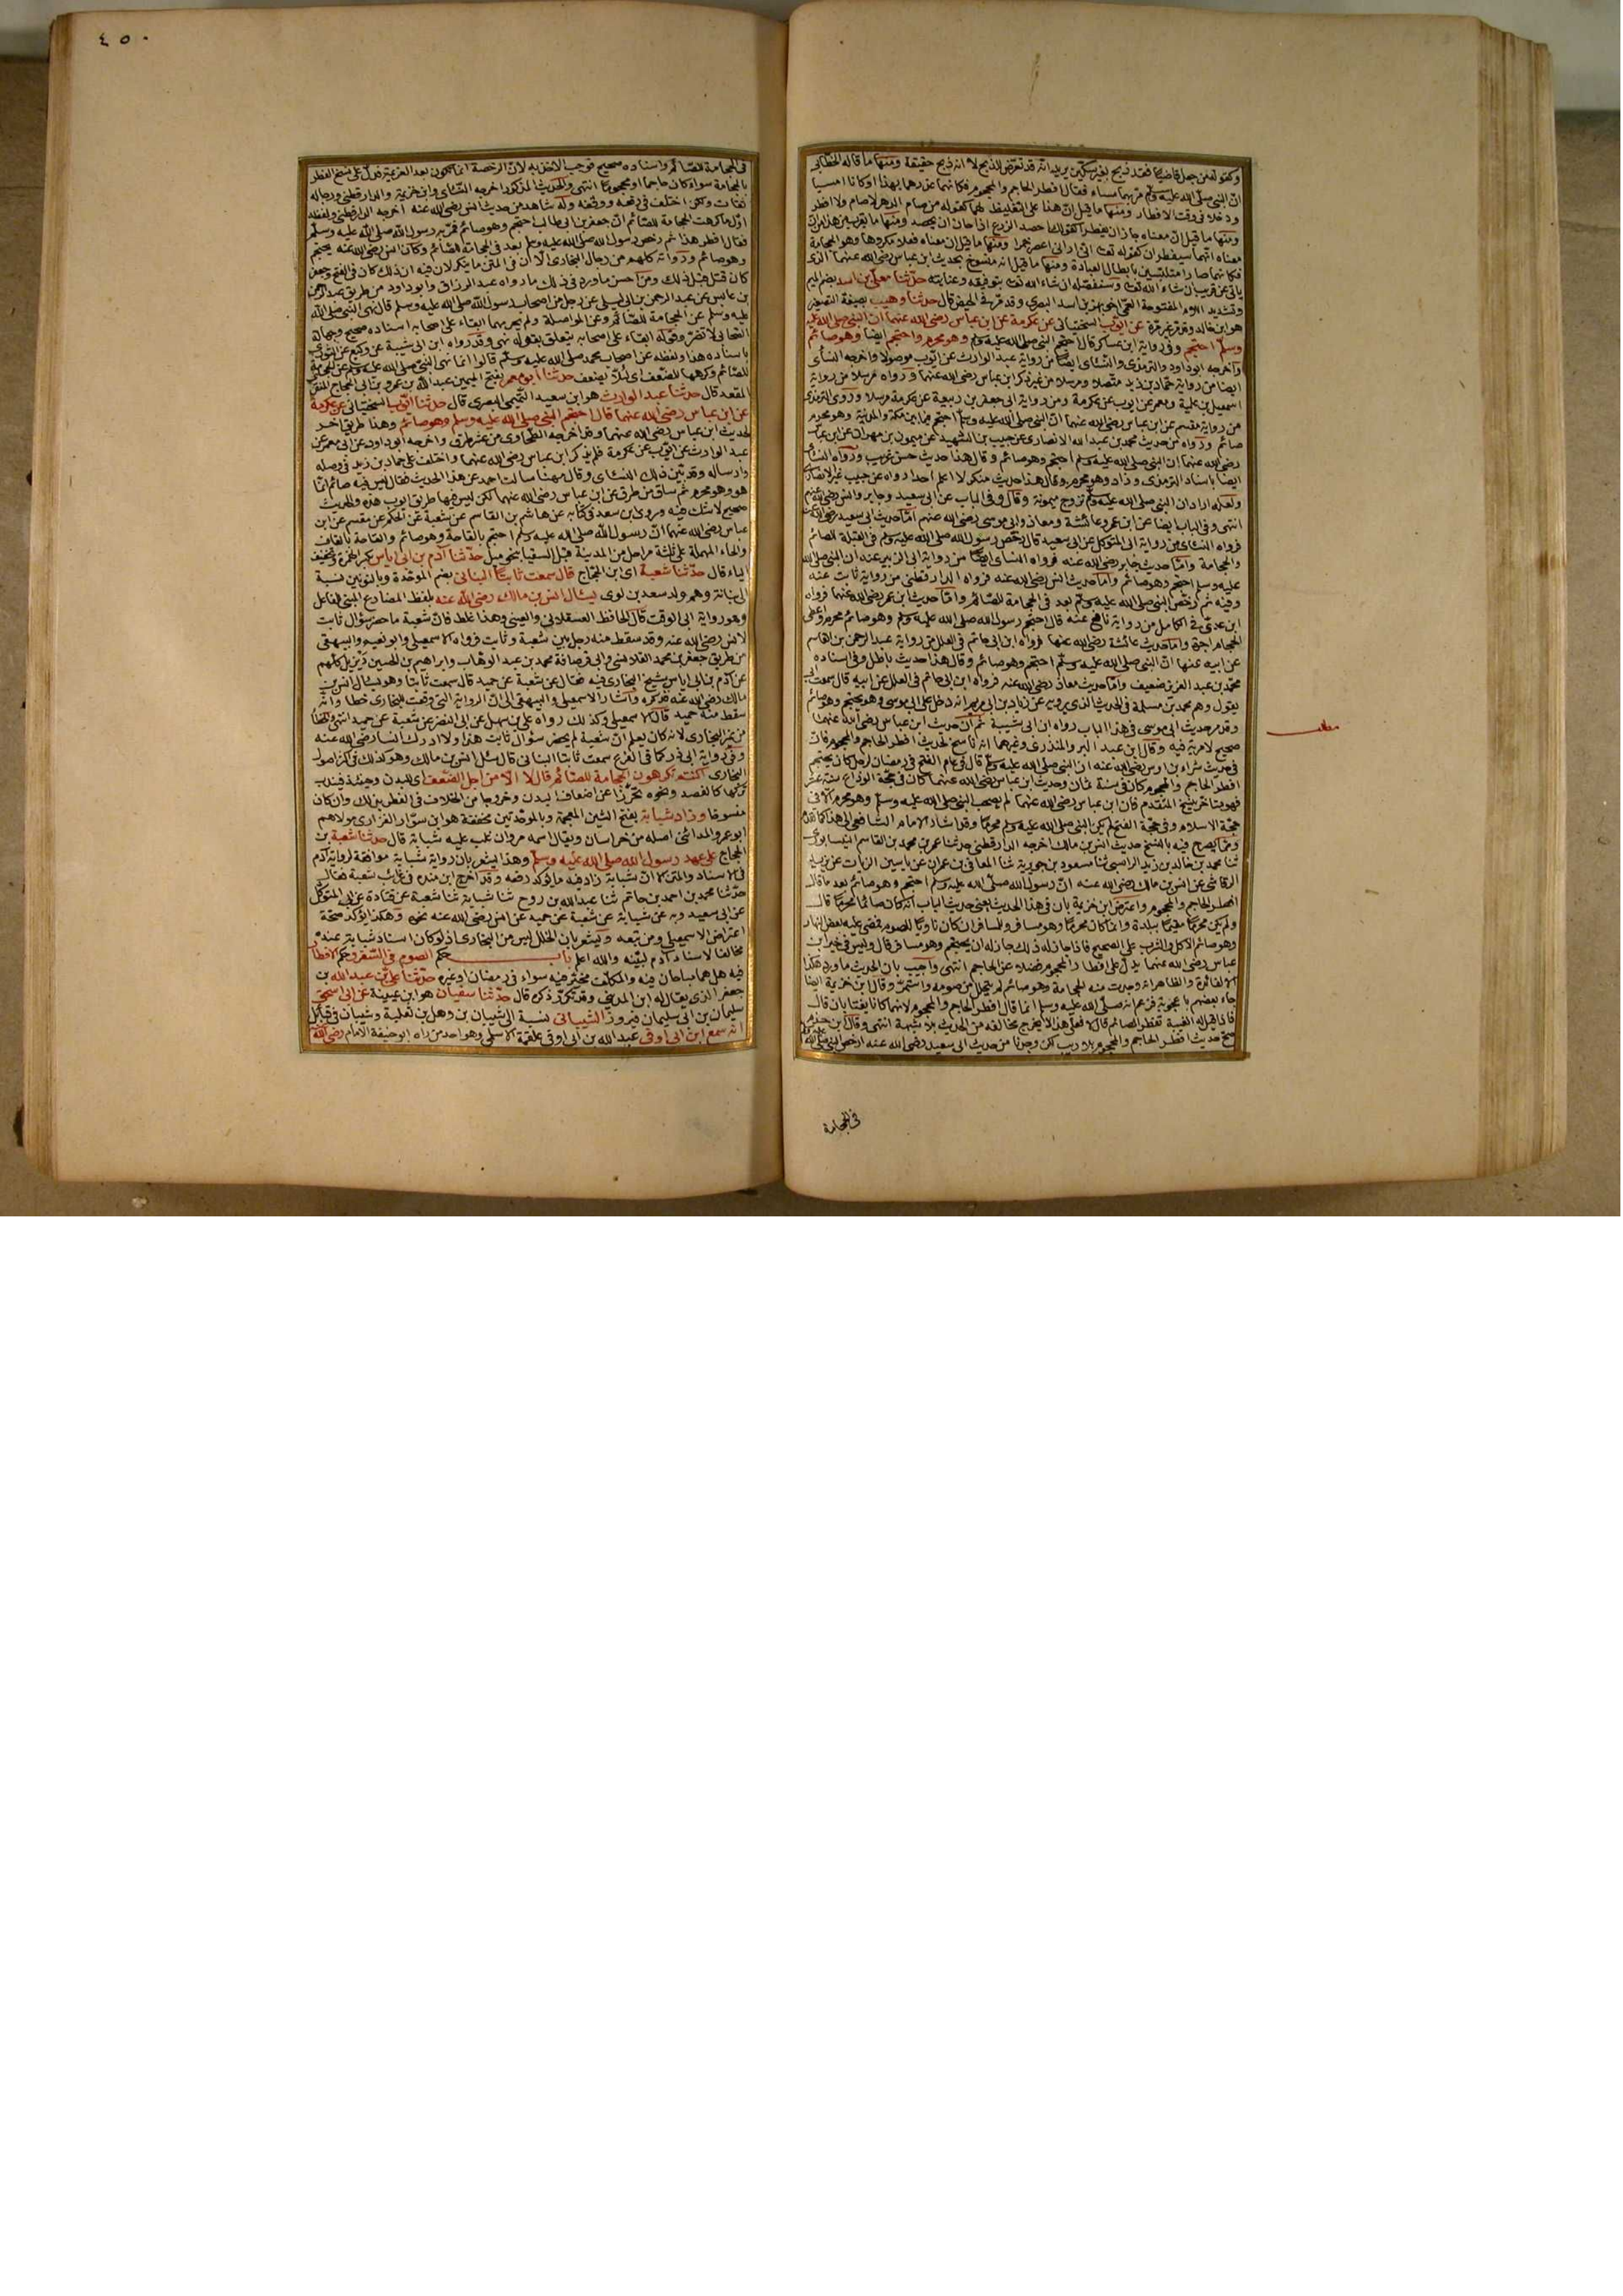 وكقوله من جعل قاضيا فقد ذبح بغير سكين يريد انه قد تعرض للذبح لا انه ذبح حقيقة ومنها ما قاله الخطابي
ان النبي صلى الله عليه وسلم مر بهما مساء فقال افطر الحاجم والمحجوم فكانه عذرهما بهذا او كانا امسيا
ودخلا في وقت الافطار ومنها ما قيل ان هذا على التغليظ لهما كقوله من صام الدهر لا صام ولا افطر
ومنها ما قيل ان معناه جاز ان يفطرا كقولك احصد الزرع اذا حان ان يحصد ومنها ما
معناه انهما سيفطران كقوله تعالى اني اراني اعصر خمرا ومنها ما قيل ان معناه فعلا مكروها وهو الحجامة
فكانهما صارا متلبسين بابطال العبادة ومنها ما قيل انه منسوخ بحديث ابن عباس رضي الله عنهما الذي
ياتي عن قريب ان شاء الله تعالى وسنفصله ان شاء الله تعالى بتوفيقه وعنايته حدثنا معلى بن اسد بضم الميم
وتشديد اللام المفتوحة العمي اخو بهز بن اسد البصري وقد مر في الحيض قال حدثنا وهيب بصيغة التصغير
هو ابن خالد وقد مر غير مرة عن ايوب السختياني عن عكرمة عن ابن عباس رضي الله عنهما ان النبي صلى الله عليه
وسلم احتجم وفي رواية ابن عساكر قال احتجم النبي صلى الله عليه وسلم وهو محرم واحتجم ايضا وهو صائم
واخرجه ابو داود والترمذي والنسائي ايضا من رواية عبد الوارث عن ايوب موصولا واخرجه النسائي
ايضا من رواية حماد بن زيد متصلا ومرسلا من غير ذكر ابن عباس رضي الله عنهما ورواه مرسلا من رواية
اسمعيل بن علية ومعمر عن ايوب عن عكرمة ومن رواية ابي جعفر بن ربيعة عن عكرمة مرسلا وروى الترمذي
من رواية مقسم عن ابن عباس رضي الله عنهما ان النبي صلى الله عليه وسلم احتجم فيما بين مكة والمدينة وهو محرم
صائم ورواه من حديث محمد بن عبد الله الانصاري عن حبيب بن الشهيد عن ميمون بن مهران عن ابن عباس
رضي الله عنهما ان النبي صلى الله عليه وسلم احتجم وهو صائم وقال هذا حديث حسن غريب ورواه النسائي
ايضا باسناد الترمذي وزاد وهو محرم وقال هذا حديث منكر لا اعلم احدا رواه عن حبيب غير الانصاري
ولعله اراد ان النبي صلى الله عليه وسلم تزوج ميمونة وقال وفي الباب عن ابي سعيد وجابر وانس رضي الله عنهم
انتهى وفي الباب ايضا عن ابن عمر وعائشة ومعاذ وابي موسى رضي الله عنهم اما حديث ابي سعيد رضي الله عنه
فرواه النسائي من رواية ابي المتوكل عن ابي سعيد قال رخص رسول الله صلى الله عليه وسلم في القبلة للصائم
والحجامة واما حديث جابر رضي الله عنه فرواه النسائي ايضا من رواية ابي الزبير عنه ان النبي صلى الله
عليه وسلم احتجم وهو صائم واما حديث انس رضي الله عنه فرواه الدارقطني من رواية ثابت عنه
وفيه ثم رخص النبي صلى الله عليه وسلم بعد في الحجامة للصائم واما حديث ابن عمر رضي الله عنهما فرواه
ابن عدي في الكامل من رواية نافع عنه قال احتجم رسول الله صلى الله عليه وسلم وهو صائم محرم واعطى
الحجام اجره واما حديث عائشة رضي الله عنها فرواه ابن ابي حاتم في العلل من رواية عبد الرحمن بن القاسم
عن ابيه عنها ان النبي صلى الله عليه وسلم احتجم وهو صائم وقال هذا حديث باطل وفي اسناده
محمد بن عبد العزيز ضعيف واما حديث معاذ رضي الله عنه فرواه ابن ابي حاتم في العلل عن ابيه قال سمعت ابي
يقول وهم محمد بن مسلمة في الحديث الذي يرويه عن زياد بن ابي مريم انه دخل على ابي موسى وهو يحتجم وهو صائم
وقد مر حديث ابي موسى في هذا الباب رواه ابن ابي شيبة ثم ان حديث ابن عباس رضي الله عنهما
صحيح لا مرية فيه وقال ابن عبد البر والمنذري وغيرهما انه ناسخ لحديث افطر الحاجم والمحجوم فان
في حديث شداد بن اوس رضي الله عنه ان النبي صلى الله عليه وسلم قال في عام الفتح في رمضان لرجل كان يحتجم
افطر الحاجم والمحجوم كان في سنة ثمان وحديث ابن عباس رضي الله عنهما كان في حجة الوداع سنة عشر
فهو متاخر ينسخ المتقدم فان ابن عباس رضي الله عنهما لم يصحب النبي صلى الله عليه وسلم وهو محرم الا في
حجة الاسلام وفي حجة الفتح لم يكن النبي صلى الله عليه وسلم محرما وقد اشار الامام الشافعي الى هذا كما تقدم
ومما يصرح فيه بالنسخ حديث انس بن مالك اخرجه الدارقطني حدثنا عمر بن محمد بن القاسم النيسابوري
ثنا محمد بن خالد بن زيد الراسبي ثنا مسعود بن جويرية ثنا المعافى بن عمران عن ياسين الزيات عن يزيد
الرقاشي عن انس بن مالك رضي الله عنه ان رسول الله صلى الله عليه وسلم احتجم وهو صائم بعد ما قال
افطر الحاجم والمحجوم واعترض ابن خزيمة بان في هذا الحديث يعني حديث الباب انه كان صائما محرما قال
ولم يكن محرما مقيما ببلدة وانما كان محرما وهو مسافر وللمسافر ان كان ناويا للصوم فمضى عليه بعض النهار
وهو صائم الاكل والشرب على الصحيح فاذا جاز له ذلك جاز له ان يحتجم وهو مسافر قال وليس في خبر ابن
عباس رضي الله عنهما يدل على افطار المحجوم فضلا عن الحاجم انتهى واجيب بان الحديث ما ورد هكذا
الا لفائدة والظاهر انه وجدت منه الحجامة وهو صائم لم يتحلل من صومه واستمر وقال ابن خزيمة ايضا
جاء بعضهم باعجوبة فزعم انه صلى الله عليه وسلم انما قال افطر الحاجم والمحجوم لانهما كانا يغتابان قال
فاذا قيل له الغيبة تفطر الصائم قال لا فعلى هذا لا يخرج مخالفه من الحديث بلا شبهة انتهى وقال ابن حزم
صح حديث افطر الحاجم والمحجوم بلا ريب لكن وجدنا من حديث ابي سعيد رضي الله عنه ارخص النبي صلى الله عليه وسلم
في الحجامة
مطلب
٤٥٠
في الحجامة للصائم واسناده صحيح فوجب الاخذ به لان الرخصة انما تكون بعد العزيمة فدل على نسخ الفطر
بالحجامة سواء كان حاجما او محجوما انتهى والحديث المذكور اخرجه النسائي وابن خزيمة والدارقطني ورجاله
ثقات ولكن اختلف في رفعه ووقفه وله شاهد من حديث انس رضي الله عنه اخرجه الدارقطني ولفظه
اول ما كرهت الحجامة للصائم ان جعفر بن ابي طالب احتجم وهو صائم فمر به رسول الله صلى الله عليه وسلم
فقال افطر هذا ثم رخص رسول الله صلى الله عليه وسلم بعد في الحجامة للصائم وكان انس رضي الله عنه يحتجم
وهو صائم ورواته كلهم من رجال البخاري الا ان في المتن ما ينكر لان فيه ان ذلك كان في الفتح وجعفر
كان قتل قبل ذلك ومن احسن ما ورد في ذلك ما رواه عبد الرزاق وابو داود من طريق عبد الرحمن
بن عابس عن عبد الرحمن بن ابي ليلى عن رجل من اصحاب رسول الله صلى الله عليه وسلم قال نهى النبي صلى الله
عليه وسلم عن الحجامة للصائم وعن المواصلة ولم يحرمهما ابقاء على اصحابه اسناده صحيح وجهالة
الصحابي لا تضر وقوله ابقاء على اصحابه يتعلق بقوله نهى وقد رواه ابن ابي شيبة عن وكيع عن الثوري
باسناده هذا ولفظه عن اصحاب محمد صلى الله عليه وسلم قالوا انما نهى النبي صلى الله عليه وسلم عن الحجامة
للصائم وكرهها للضعف اي لئلا يضعف حدثنا ابو معمر بفتح الميمين عبد الله بن عمرو بن ابي الحجاج المنقري
المقعد قال حدثنا عبد الوارث هو ابن سعيد التميمي البصري قال حدثنا ايوب السختياني عن عكرمة
عن ابن عباس رضي الله عنهما قال احتجم النبي صلى الله عليه وسلم وهو صائم وهذا طريق اخر
لحديث ابن عباس رضي الله عنهما وقد اخرجه الطحاوي من عشر طرق واخرجه ابو داود عن ابي معمر عن
عبد الوارث عن ايوب عن عكرمة فلم يذكر ابن عباس رضي الله عنهما واختلف على حماد بن زيد في وصله
وارساله وقد بين ذلك النسائي وقال مهنا سالت احمد عن هذا الحديث فقال ليس فيه صائم انما
هو وهو محرم ثم ساق من طرق عن ابن عباس رضي الله عنهما لكن ليس فيها طريق ايوب هذه والحديث
صحيح لا شك فيه وروى ابن سعد في كتابه عن هاشم بن القاسم عن شعبة عن الحكم عن مقسم عن ابن
عباس رضي الله عنهما ان رسول الله صلى الله عليه وسلم احتجم بالقاحة وهو صائم والقاحة بالقاف
والحاء المهملة على ثلثة مراحل من المدينة قبل السقيا بنحو ميل حدثنا آدم بن ابي اياس بكسر الهمزة وتخفيف
الياء قال حدثنا شعبة اي ابن الحجاج قال سمعت ثابتا البناني بضم الموحدة وبالنونين نسبة
الى بنانة وهم ولد سعد بن لوى يسئال انس بن مالك رضي الله عنه بلفظ المضارع المبني للفاعل
وهو رواية ابي الوقت قال الحافظ العسقلاني والعيني وهذا غلط فان شعبة ما حضر سؤال ثابت
لانس رضي الله عنه وقد سقط منه رجل بين شعبة وثابت فرواه الاسمعيلي وابو نعيم والبيهقي
من طريق جعفر بن محمد القلانسي وابي قرصافة محمد بن عبد الوهاب وابراهيم بن الحسين ديزيل كلهم
عن آدم بن ابي اياس شيخ البخاري فيه فقال عن شعبة عن حميد قال سمعت ثابتا وهو يسال انس بن
مالك رضي الله عنه فذكره واشار الاسمعيلي والبيهقي الى ان الرواية التي وقعت للبخاري خطا وانه
سقط منه حميد قال الاسمعيلي وكذلك رواه علي بن سهل عن ابي النضر عن شعبة عن حميد انتهى والخطا
من غير البخاري لانه كان يعلم ان شعبة لم يحضر سؤال ثابت هذا ولا ادرك انسا رضي الله عنه
وفي رواية ابي ذر كما في الفرع سمعت ثابتا البناني قال سئل انس بن مالك وهو كذلك في اكثر اصول
البخاري اكنتم تكرهون الحجامة للصائم قال لا الا من اجل الضعف اي للبدن وحينئذ فيندب
تركها كالفصد ونحوه تحرزا عن اضعاف البدن وخروجا من الخلاف في الفطر بذلك وان كان
منسوخا وزاد شبابة بفتح الشين المعجمة وبالموحدتين مخففة هو ابن سوار الفزاري مولاهم
ابو عمرو المدائني اصله من خراسان ويقال اسمه مروان غلب عليه شبابة قال حدثنا شعبة بن
الحجاج على عهد رسول الله صلى الله عليه وسلم وهذا يشعر بان رواية شبابة موافقة لرواية آدم
في الاسناد والمتن الا ان شبابة زاد فيه ما يؤكد رفعه وقد اخرج ابن منده في غرائب شعبة فقال
حدثنا محمد بن احمد بن حاتم ثنا عبد الله بن روح ثنا شبابة ثنا شعبة عن قتادة عن ابي المتوكل
عن ابي سعيد وبه عن شبابة عن شعبة عن حميد عن انس رضي الله عنه نحوه وهكذا يؤكد صحة
اعتراض الاسمعيلي ومن تبعه ويشعر بان الخلل ليس من البخاري اذ لو كان اسناد شبابة عنده
مخالفا لاسناد آدم لبينه والله اعلم باب حكم الصوم في السفر وحكم الافطار
فيه هل هما مباحان فيه والمكلف مخير فيه سواء في رمضان او غيره حدثنا علي بن عبد الله بن
جعفر الذي يقال له ابن المديني وقد تكرر ذكره قال حدثنا سفيان هو ابن عيينة عن ابي اسحق
سليمان بن ابي سليمان فيروز الشيباني نسبة الى شيبان بن ذهل بن ثعلبة وشيبان في قبائل
انه سمع ابن ابي اوفى عبد الله بن ابي اوفى علقمة الاسلمي وهو احد من راه ابو حنيفة الامام رضي الله